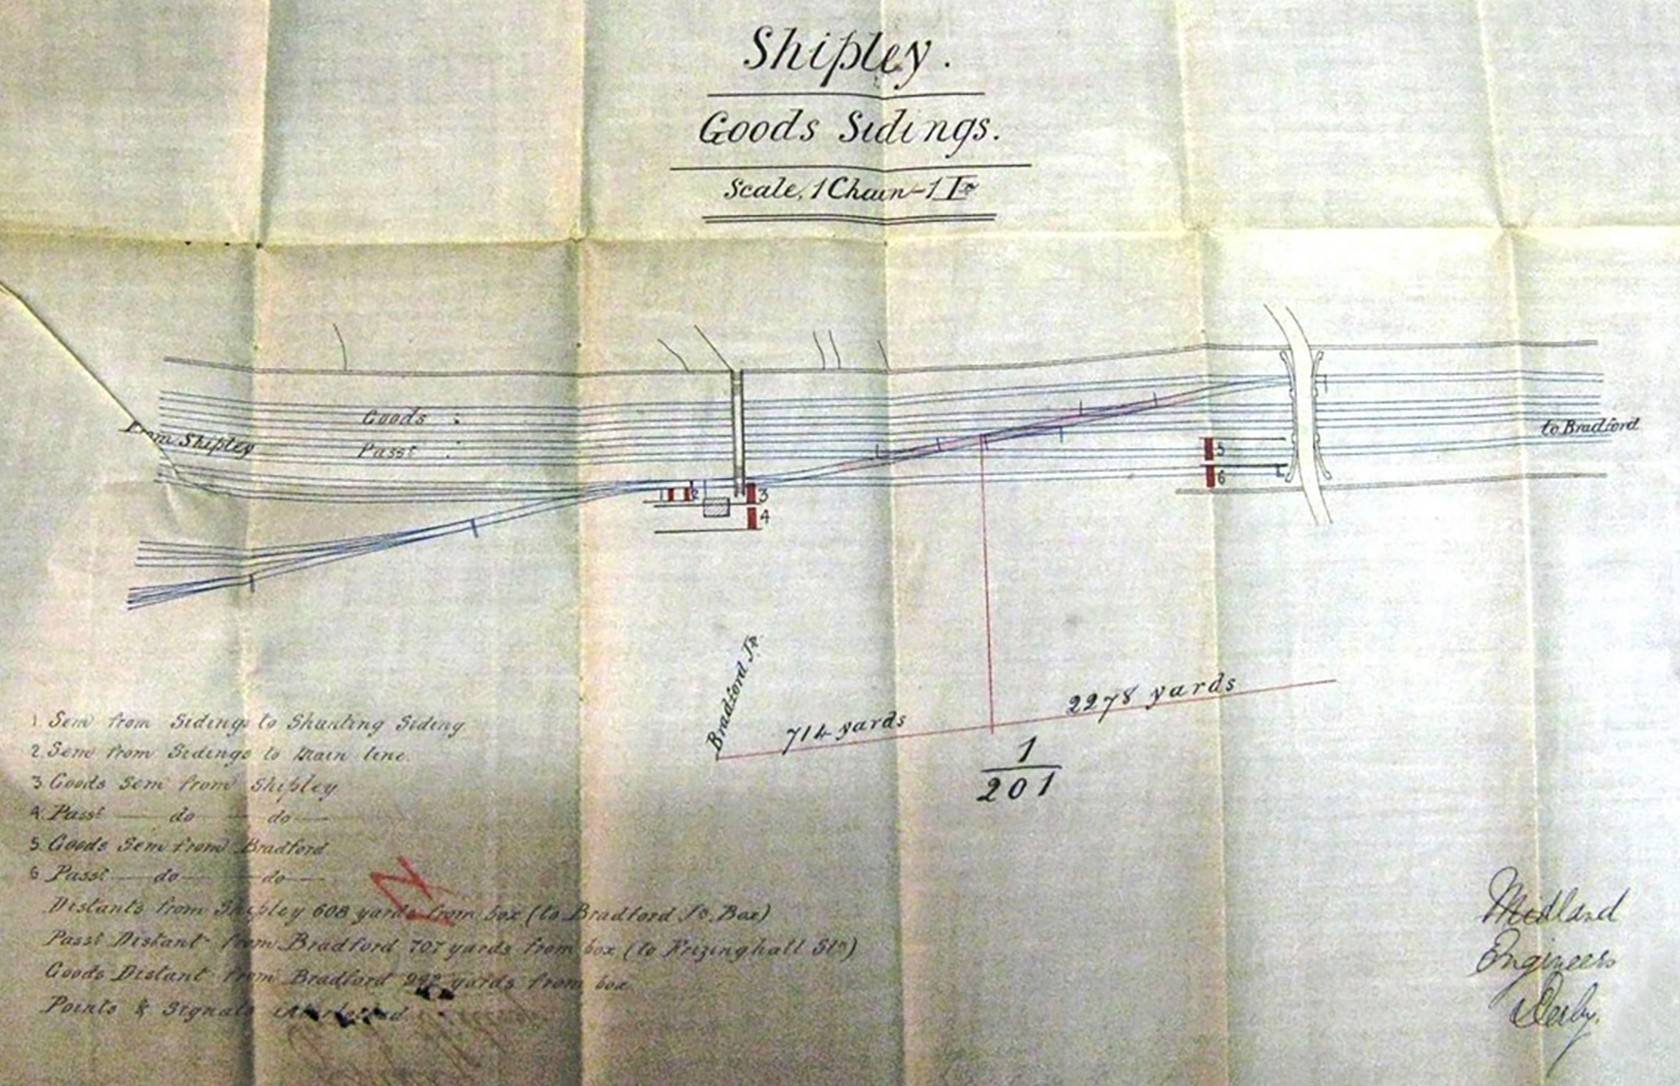 Shipley.
Goods Sidings.
Scale, 1 Chain = 1 In
Goods
From Shipley
Passr
to Bradford
1 2 3
4
5
6
Bradford Jn
714 yards
2278 yards
1
201
1 Sem from Sidings to Shunting Siding
2 Sem from Sidings to Main line.
3 Goods Sem from Shipley
4. Passr do do
5 Goods Sem from Bradford
6 Passr do do
N
Distants from Shipley 608 yards from box (to Bradford Jn. Box)
Passr Distant from Bradford 707 yards from box (to Frizinghall Stn)
Goods Distant from Bradford yards from box
Points & Signals
Midland
Engineers
Derby.